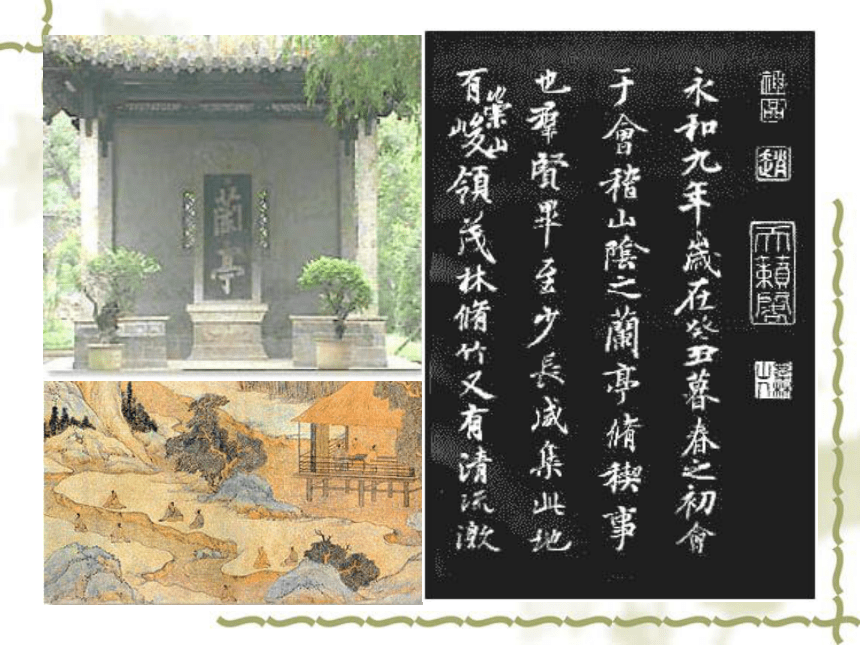 蘭亭
永和九年歲在癸丑暮春之初會
于會稽山陰之蘭亭脩稧事
也羣賢畢至少長咸集此地
有崇山峻領茂林脩竹又有清流激
神品
趙
天籟閣